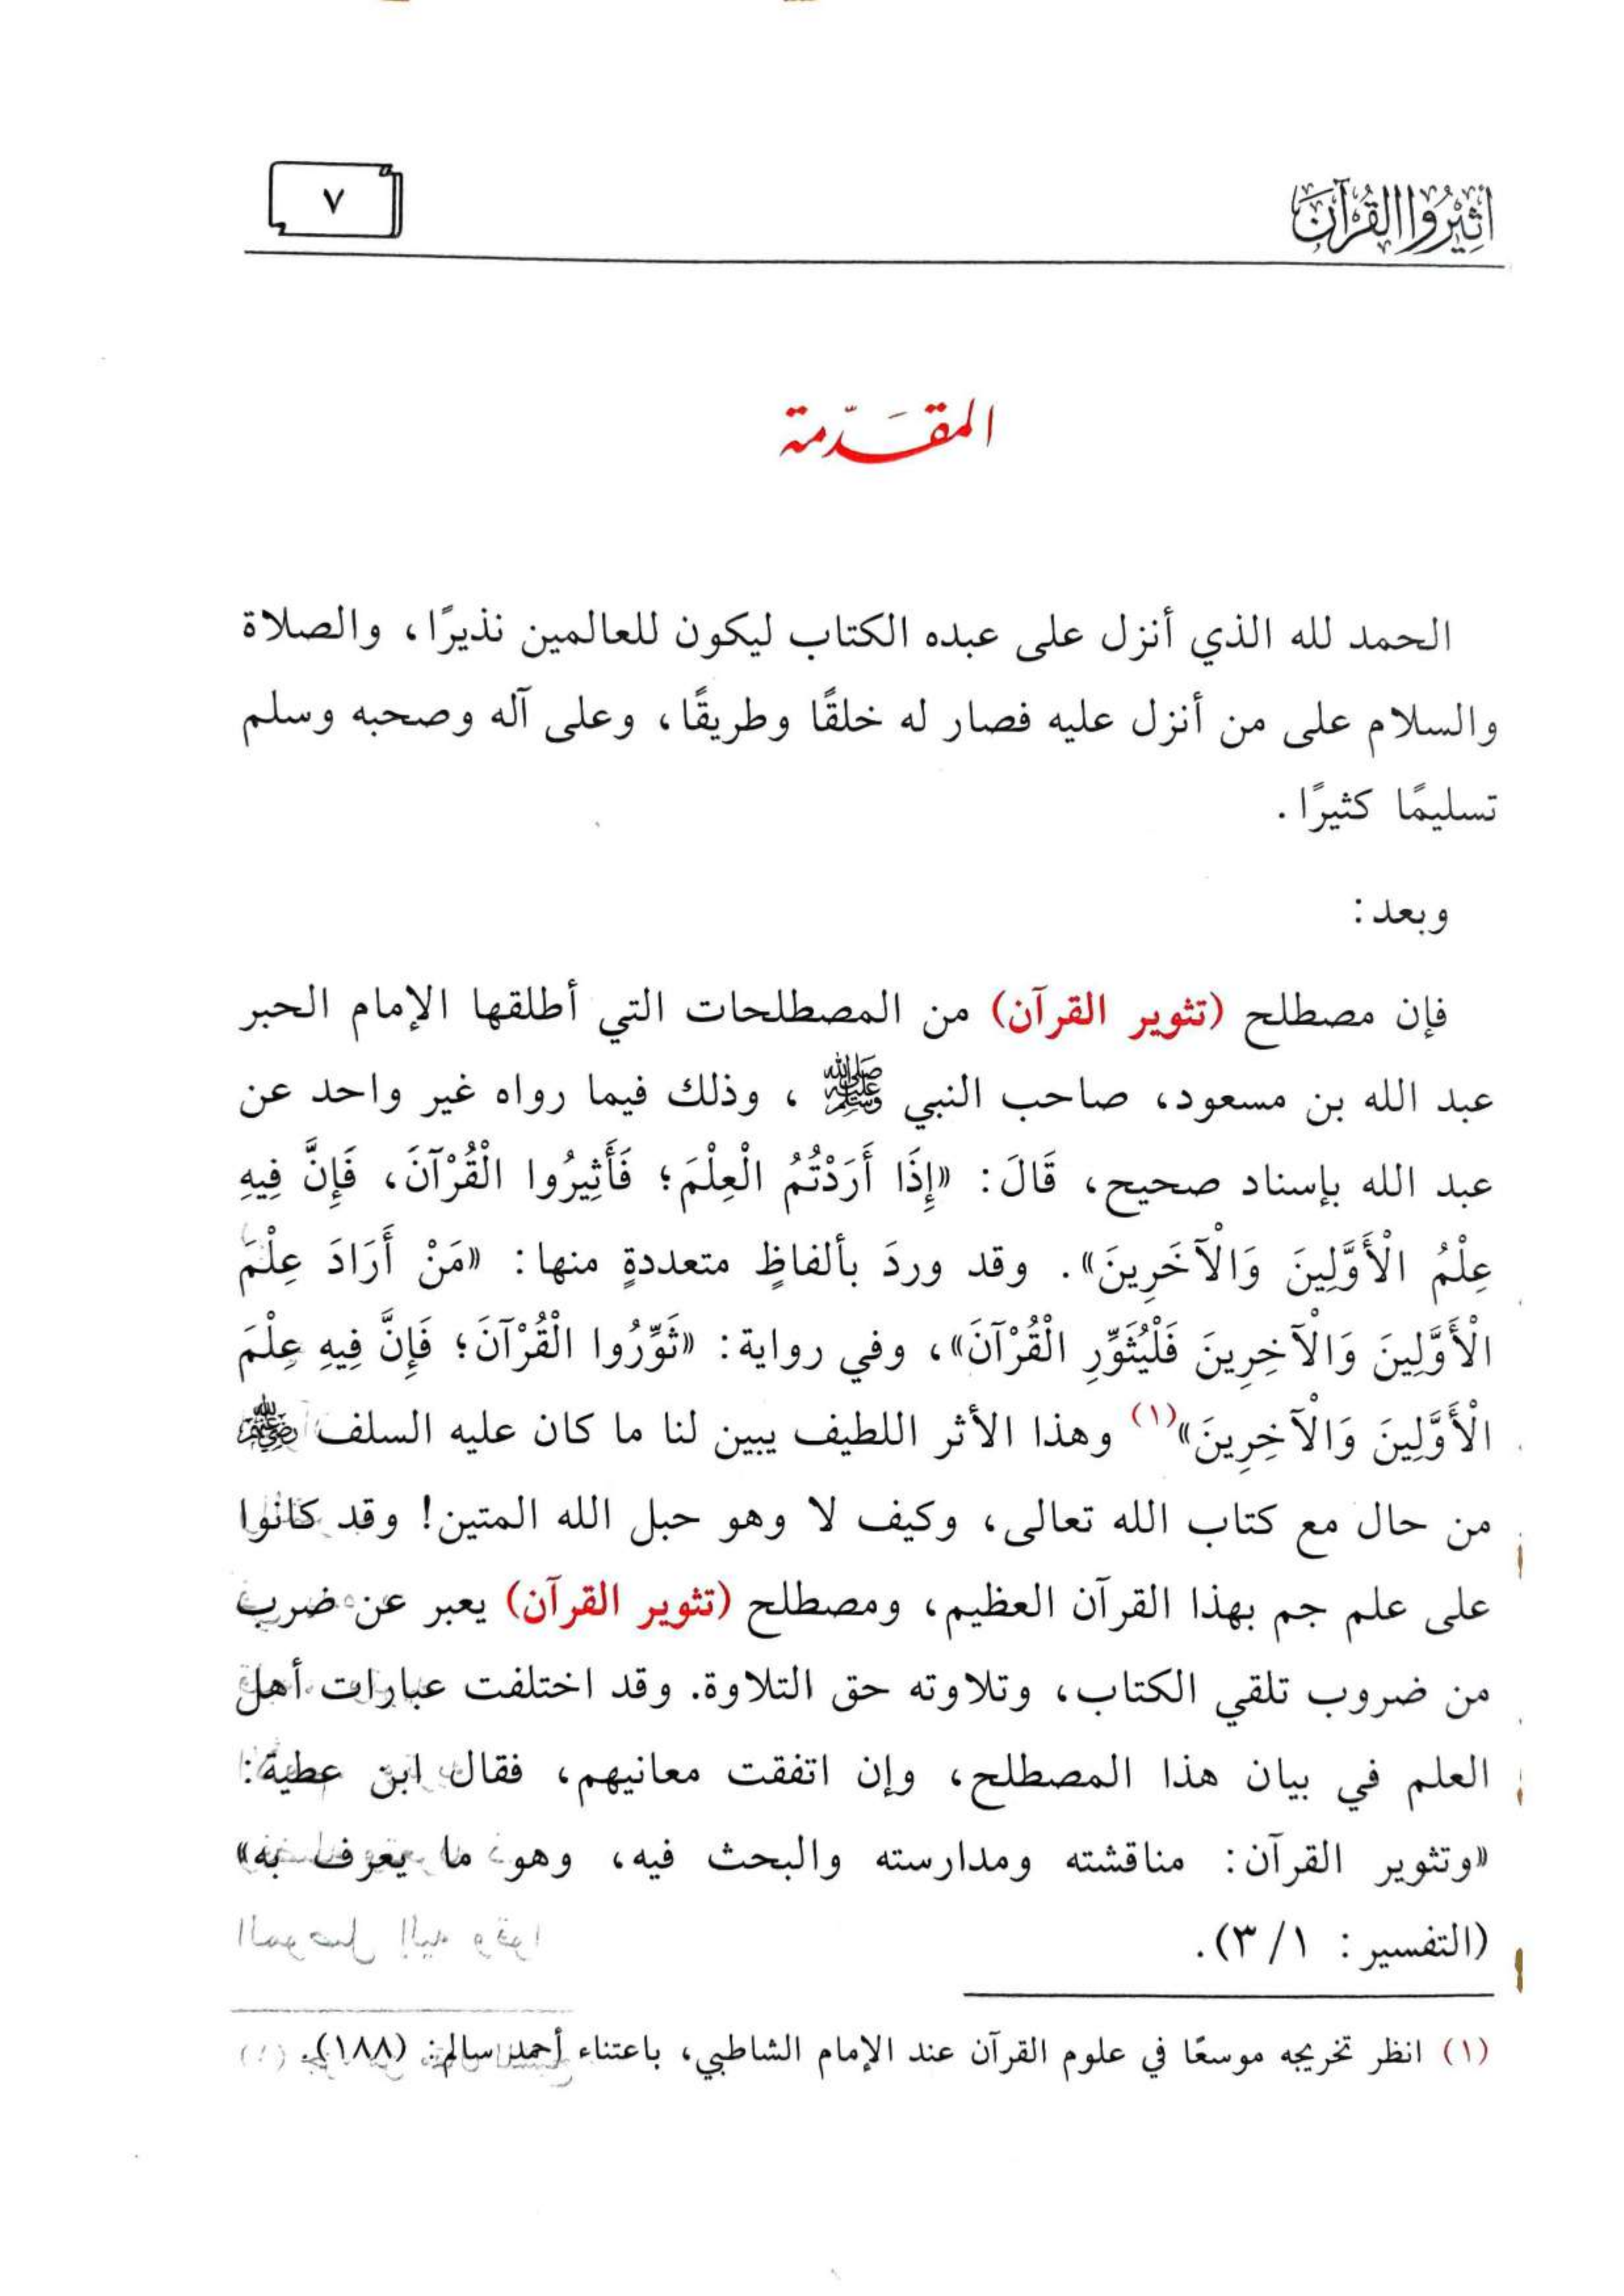 أَثِيْرُوا القُرْآنَ
٧
المقَدّمة
الحمد لله الذي أنزل على عبده الكتاب ليكون للعالمين نذيرًا، والصلاة
والسلام على من أنزل عليه فصار له خلقًا وطريقًا، وعلى آله وصحبه وسلم
تسليمًا كثيرًا.
وبعد:
فإن مصطلح (تثوير القرآن) من المصطلحات التي أطلقها الإمام الحبر
عبد الله بن مسعود، صاحب النبي ﷺ، وذلك فيما رواه غير واحد عن
عبد الله بإسناد صحيح، قَالَ: «إِذَا أَرَدْتُمُ الْعِلْمَ؛ فَأَثِيرُوا الْقُرْآنَ، فَإِنَّ فِيهِ
عِلْمُ الْأَوَّلِينَ وَالْآخَرِينَ». وقد وردَ بألفاظٍ متعددةٍ منها: «مَنْ أَرَادَ عِلْمَ
الْأَوَّلِينَ وَالْآخِرِينَ فَلْيُثَوِّرِ الْقُرْآنَ»، وفي رواية: «ثَوِّرُوا الْقُرْآنَ؛ فَإِنَّ فِيهِ عِلْمَ
الْأَوَّلِينَ وَالْآخِرِينَ»(١) وهذا الأثر اللطيف يبين لنا ما كان عليه السلف رضي الله عنهم
من حال مع كتاب الله تعالى، وكيف لا وهو حبل الله المتين! وقد كانوا
على علم جم بهذا القرآن العظيم، ومصطلح (تثوير القرآن) يعبر عن ضرب
من ضروب تلقي الكتاب، وتلاوته حق التلاوة. وقد اختلفت عبارات أهل
العلم في بيان هذا المصطلح، وإن اتفقت معانيهم، فقال ابن عطية:
«وتثوير القرآن: مناقشته ومدارسته والبحث فيه، وهو ما يعرف به»
(التفسير: ١/ ٣).
(١) انظر تخريجه موسعًا في علوم القرآن عند الإمام الشاطبي، باعتناء أحمد سالم: (١٨٨).